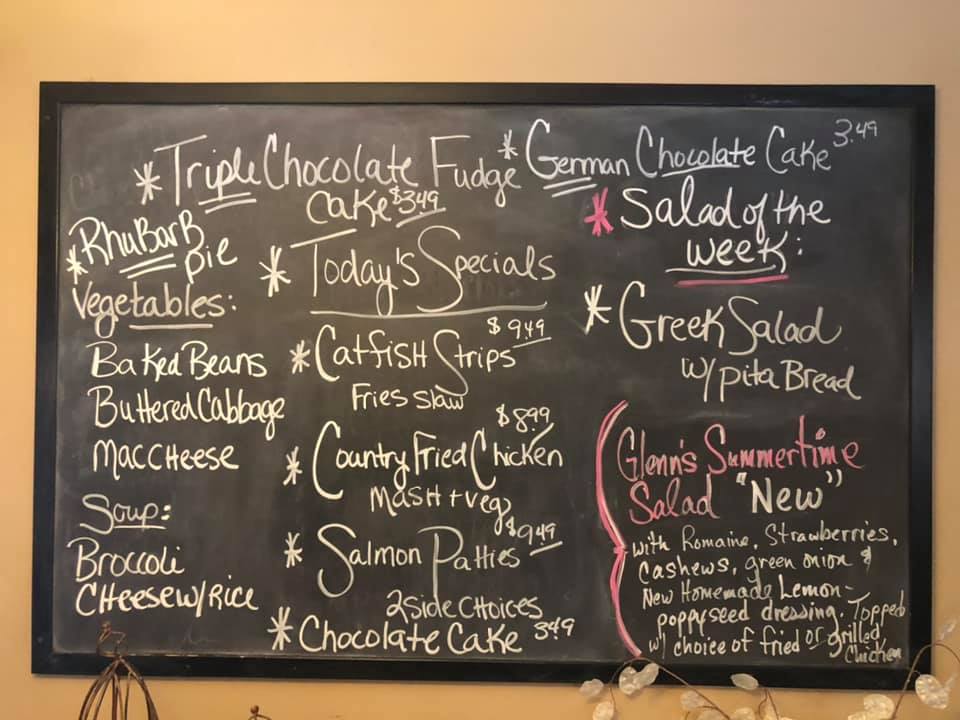 * Triple Chocolate Fudge
Cake $3.49
* German Chocolate Cake 3.49
* Rhubarb
Pie
Vegetables:
Baked Beans
Buttered Cabbage
Mac CHeese
Soup:
Broccoli
CHeese w/ Rice
* Today's Specials
* Catfish Strips $9.49
Fries slaw
* Country Fried Chicken $8.99
Mash + veg
* Salmon Patties $9.49
2 Side CHoices
* Chocolate Cake 3.49
* Salad of the
week:
* Greek Salad
w/ pita Bread
Glenn's Summertime
Salad "New"
with Romaine, Strawberries,
Cashews, green onion &
New Homemade Lemon-
poppyseed dressing. Topped
w/ choice of fried or grilled
Chicken